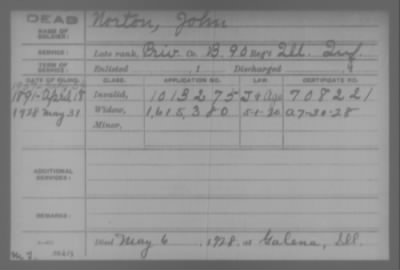 DEAD
NAME OF SOLDIER: Norton, John
SERVICE: Late rank, Priv. Co. B. 90 Reg't Ill. Inf.
TERM OF SERVICE: Enlisted , 1 Discharged , 1
DATE OF FILING. CLASS. APPLICATION NO. LAW. CERTIFICATE NO.
1891-April 18 Invalid, 1013275 J & Age 708221
1928 May 31 Widow, 1,615,380 5-1-20 A 7-30-28
Minor,
ADDITIONAL SERVICES:
REMARKS:
Died May 6, 1928, at Galena, Ill.